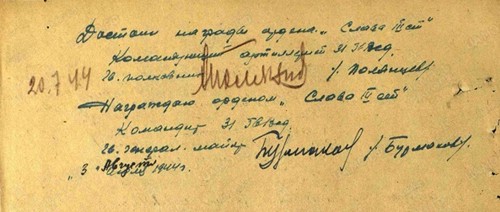 Достоин награды ордена „Слава III ст“
Командующий артиллерией 31 Гв.сд.
20.7.44
Гв. полковник /Полянцев/
Награждаю орденом „Слава III ст“
Командир 31 Гв.сд.
Гв. генерал-майор /Бурмаков/
„3“ Августа 1944г.